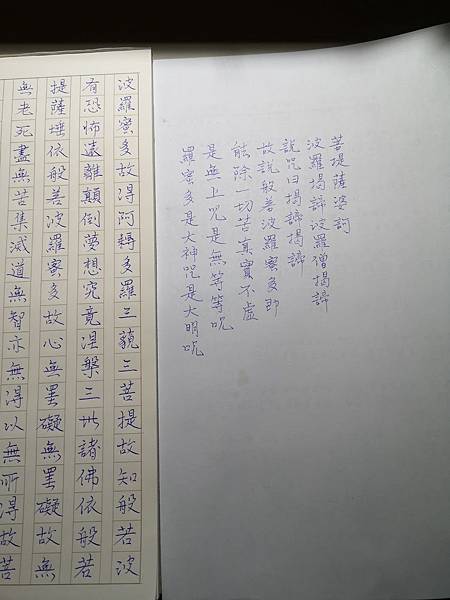 無老死盡無苦集滅道無智亦無得以無所得故菩
提薩埵依般若波羅蜜多故心無罣礙無罣礙故無
有恐怖遠離顛倒夢想究竟涅槃三世諸佛依般若
波羅蜜多故得阿耨多羅三藐三菩提故知般若波
羅蜜多是大神咒是大明咒
是無上咒是無等等咒
能除一切苦真實不虛
故說般若波羅蜜多即
說咒曰揭諦揭諦
波羅揭諦波羅僧揭諦
菩提薩婆訶